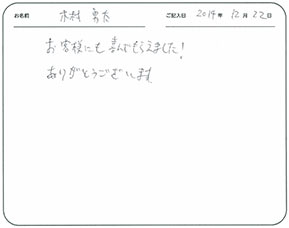 お名前 木村 勇太 ご記入日 2014年 12月 22日
お客様にも喜んでもらえました！
ありがとうございます